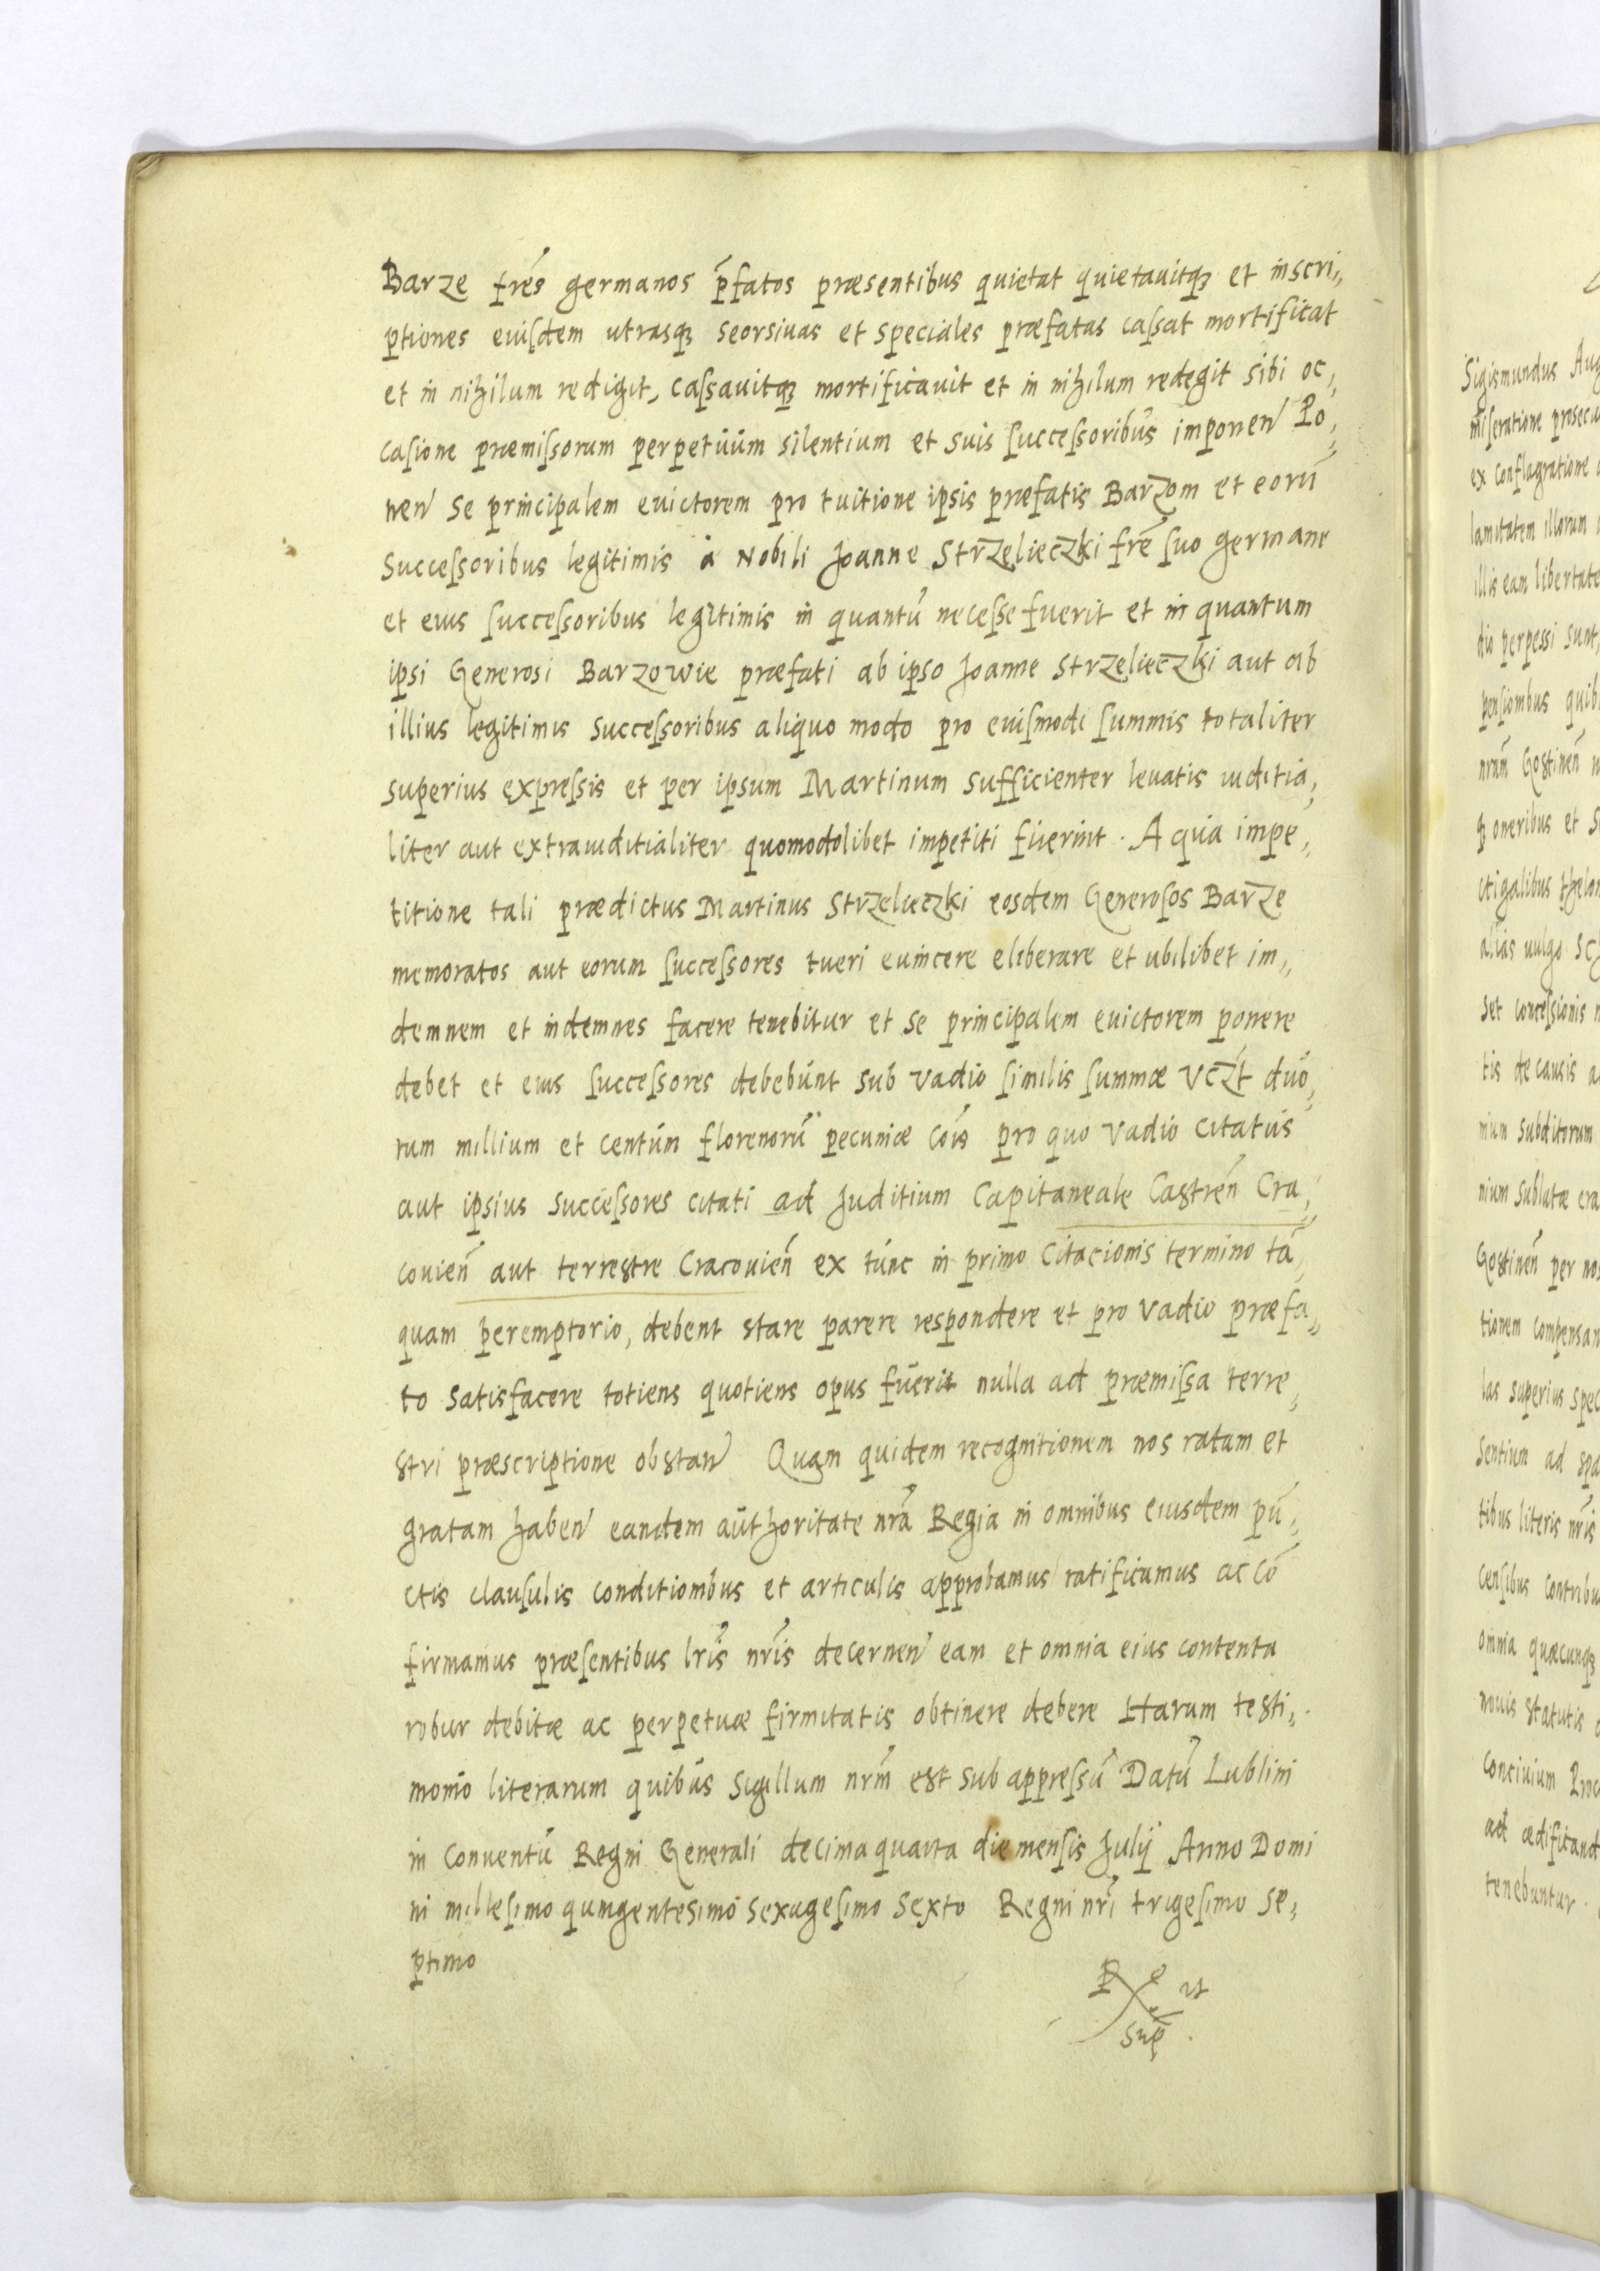 Barze fres germanos pfatos præsentibus quietat quietauitqꝫ et inscri„
ptiones euisdem utrasqꝫ seorsiuas et speciales præfatas cassat mortificat
et in nihilum redigit, cassauitqꝫ mortificauit et in nihilum redegit sibi oc„
casione præmissorum perpetuum silentium et suis successoribus imponen Po„
nen se principalem euictorem pro tuitione ipsis præfatis Barzom et eorū
successoribus legitimis a Nobili Joanne Strzelieczki fre suo germane
et eius successoribus legitimis in quantū necesse fuerit et in quantum
ipsi Generosi Barzowie præfati ab ipso Joanne Strzelieczki aut ab
illius legitimis successoribus aliquo modo pro euismodi summis totaliter
superius expressis et per ipsum Martinum sufficienter leuatis iuditia„
liter aut extraiuditialiter quomodolibet impetiti fuerint. A quia impe„
titione tali prædictus Martinus Strzelieczki eosdem Generosos Barze
memoratos aut eorum successores tueri euincere eliberare et ubilibet im„
demnem et indemnes facere tenebitur et se principalem euictorem ponere
debet et eius successores debebunt sub vadio similis summæ vczt duo„
rum millium et centum florenorū pecuniæ cois pro quo vadio citatus
aut ipsius successores citati ad Juditium Capitaneale Castren Cra„
couien aut terrestre Cracouien ex tunc in primo citacionis termino tā„
quam peremptorio, debent stare parere respondere et pro vadio præfa„
to satisfacere totiens quotiens opus fuerit nulla ad præmissa terre„
stri præscriptione obstan Quam quidem recognitionem nos ratam et
gratam haben eandem authoritate nra Regia in omnibus eiusdem pū„
ctis clausulis conditionibus et articulis approbamus ratificamus ac cō
firmamus præsentibus lris nris decernen eam et omnia eius contenta
robur debitæ ac perpetuæ firmitatis obtinere debere Harum testi„
monio literarum quibus sigillum nrm est sub appressū Datū Lublini
in Conuentū Regni Generali decima quarta die mensis Julij Anno Domi
ni millesimo quingentesimo sexagesimo sexto Regni nri trigesimo se„
ptimo
Rx ut
sup.
Sigismundus Aug
miseratione prosecu
ex conflagratione
lamitatem illorum
illis eam libertate
dio perpessi sunt,
pensionibus quib
nram Gostinen
oneribus et
ctigalibus thelon
alias vulgo sch
set concessionis
tis de causis
mum subditorum
nium sublatæ
Gostinen per nos
tionem compensan
las superius spec
sentium ad spa
tibus literis nris
censibus contribu
omnia quæcunqꝫ
nouis statutis
conciuium
ad ædificand
tenebuntur.